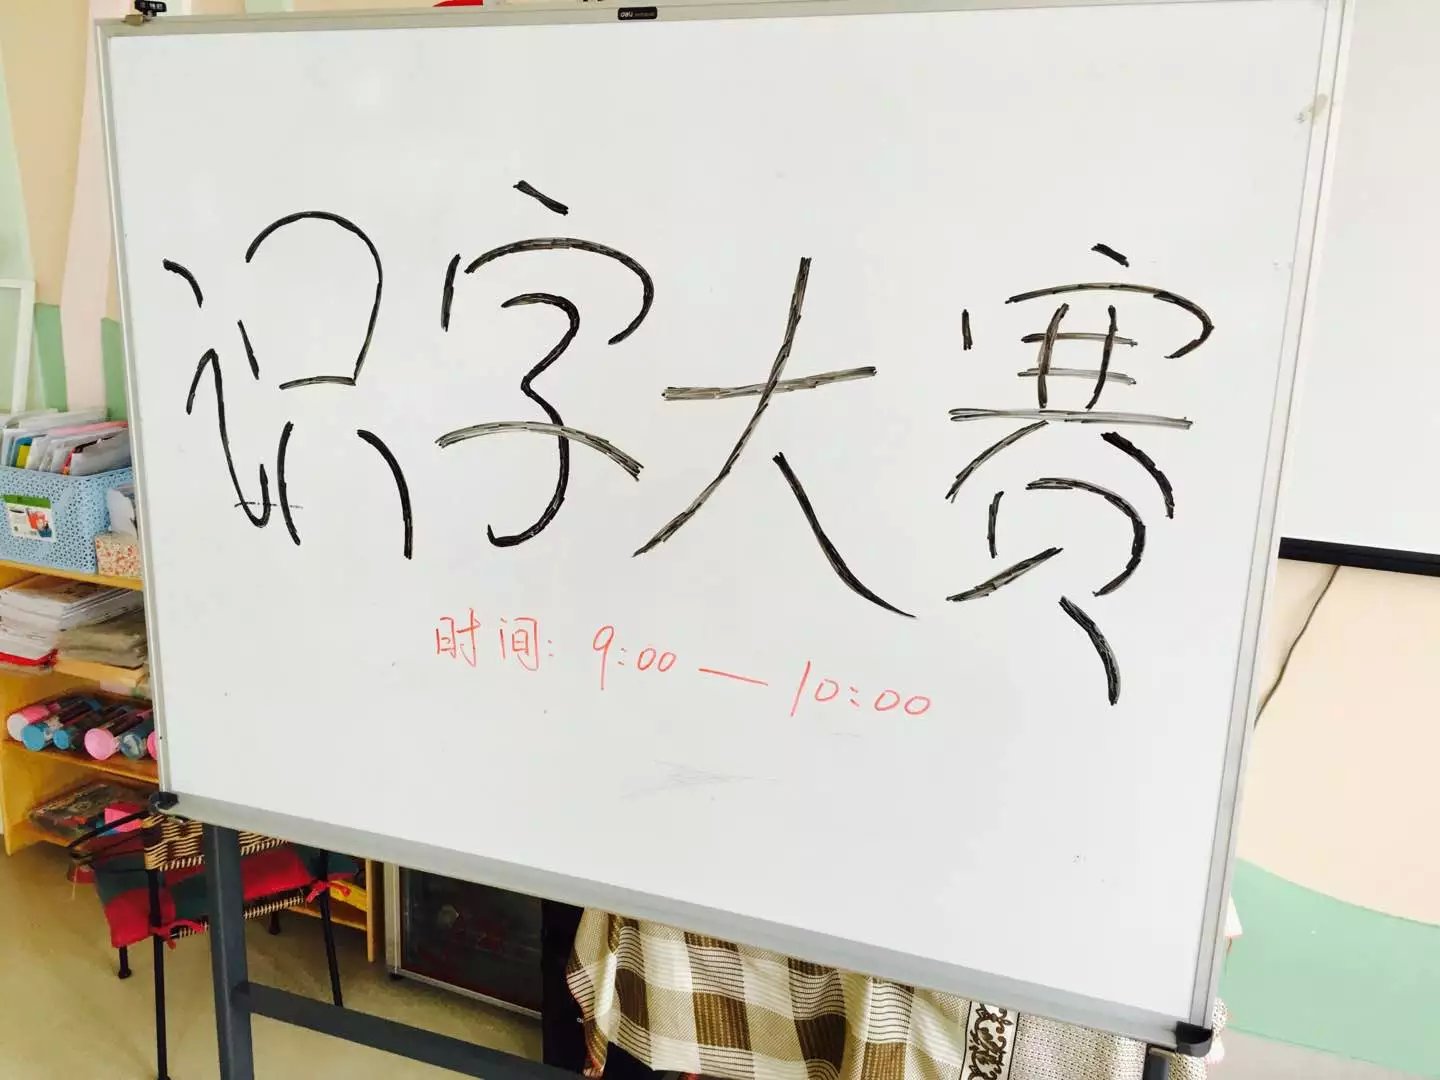 deli
识字大赛
时间：9:00—10:00